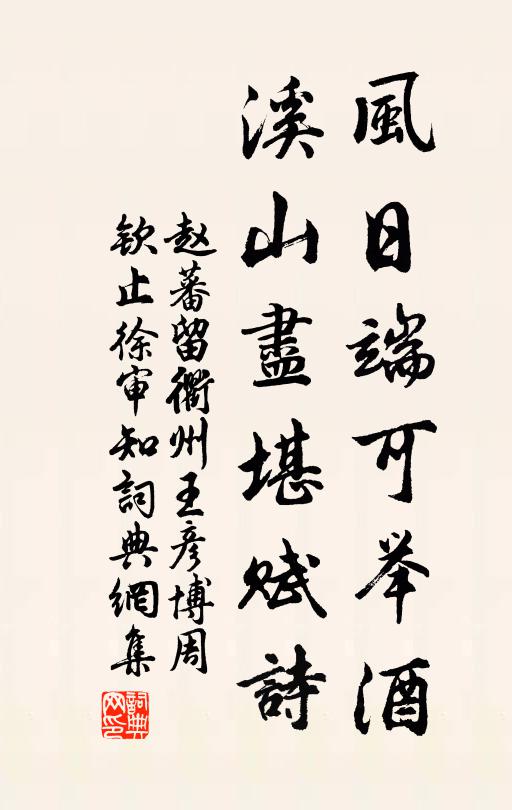 風日端可举酒
溪山盡堪赋詩
赵蕃留衢州王彦博周
钦止徐审知詞典網集
詞典
网印